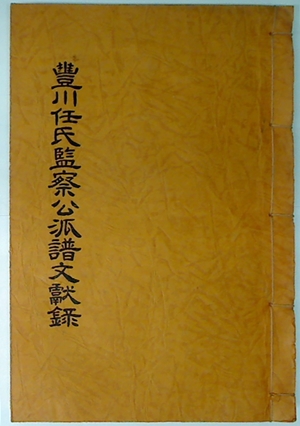 豐川任氏監察公派譜文獻錄